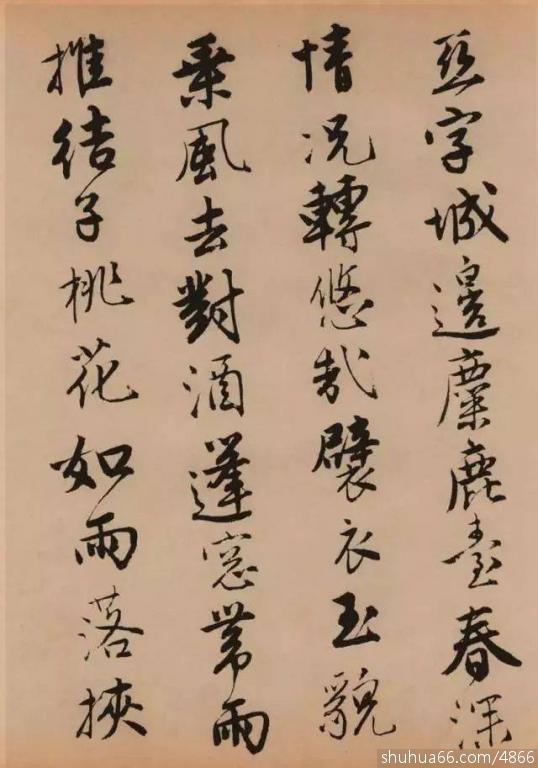 亞字城邊麋鹿臺春深
情况轉悠哉襞衣玉貌
乘風去對酒蓬窓帶雨
推結子桃花如雨落挾
shuhua66.com/4866